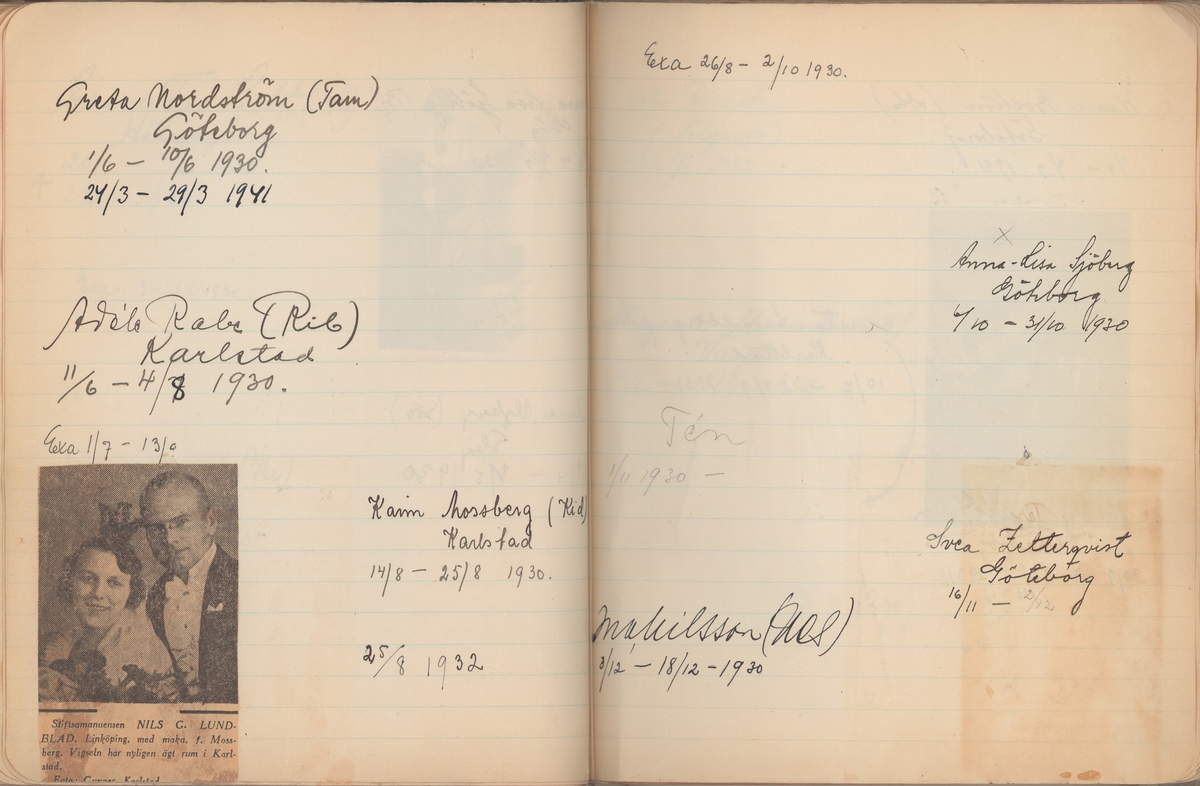 Greta Nordström (Tam)
Göteborg
1/6 – 10/6 1930.
24/3 – 29/3 1941
Adèle Rabe (Rib)
Karlstad
11/6 – 4/8 1930.
Exa 1/7 – 13/9
Stiftsamanuensen NILS G. LUND-
BLAD, Linköping, med maka, f. Moss-
berg. Vigseln har nyligen ägt rum i Karl-
stad.
Karin Mossberg (Kid)
Karlstad
14/8 – 25/8 1930.
25/8 1932
Exa 26/8 – 2/10 1930.
Anna-Lisa Sjöberg
Göteborg
/10 – 31/10 1930
Tén
1/11 1930 –
Svea Zetterqvist
Göteborg
16/11 – 2/12
(Mes)
3/12 – 18/12 – 1930